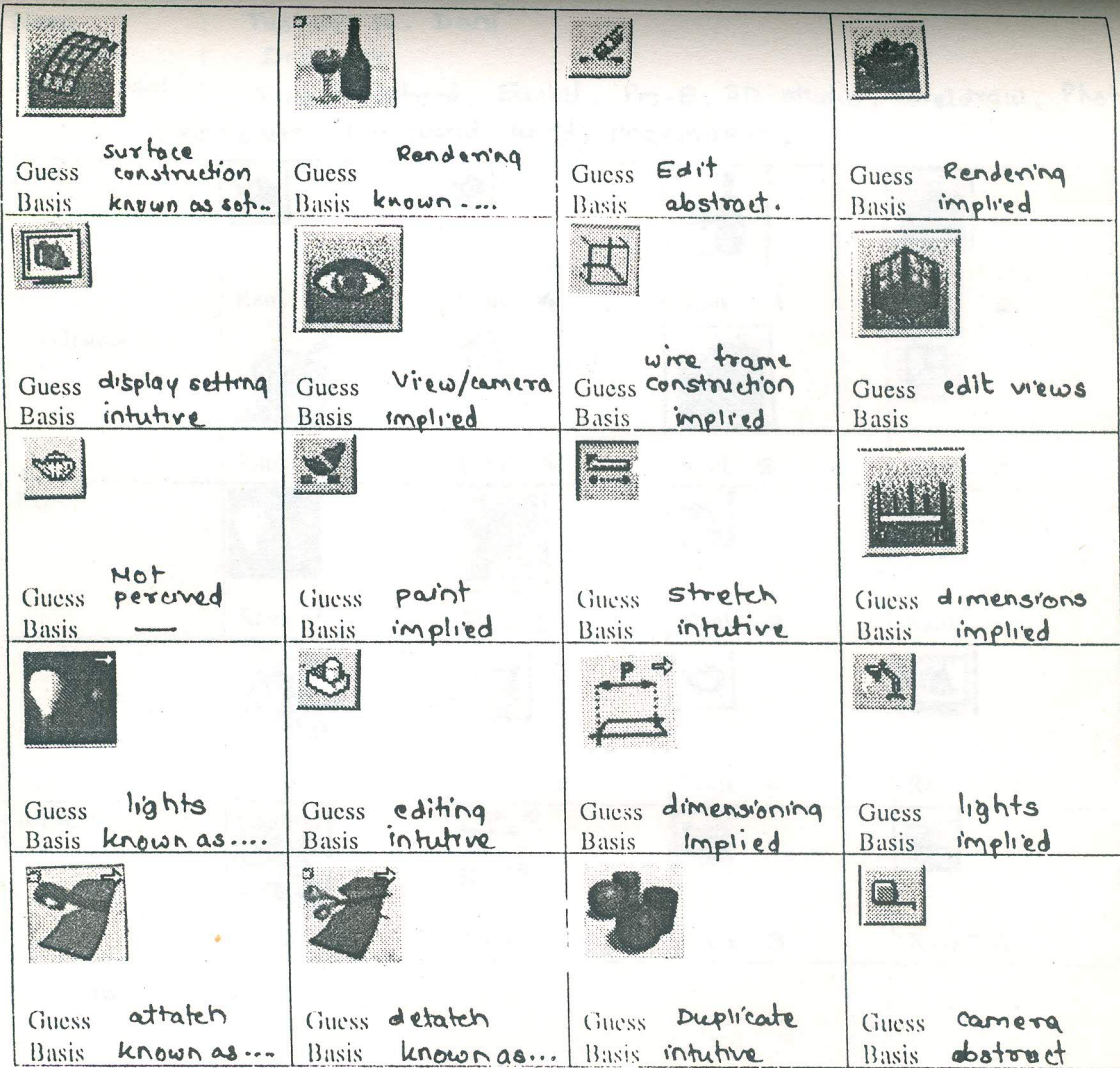 surface
Guess construction
Basis known as sof..
Rendering
Guess
Basis known ....
Guess Edit
Basis abstract.
Guess Rendering
Basis implied
Guess display setting
Basis intutive
Guess View/camera
Basis implied
wire frame
Guess construction
Basis implied
Guess edit views
Basis
Not
Guess percived
Basis —
Guess paint
Basis implied
Guess stretch
Basis intutive
Guess dimensions
Basis implied
Guess lights
Basis known as....
Guess editing
Basis intutive
P
Guess dimensioning
Basis implied
Guess lights
Basis implied
Guess attatch
Basis known as ....
Guess detatch
Basis known as...
Guess Duplicate
Basis intutive
Guess camera
Basis abstract